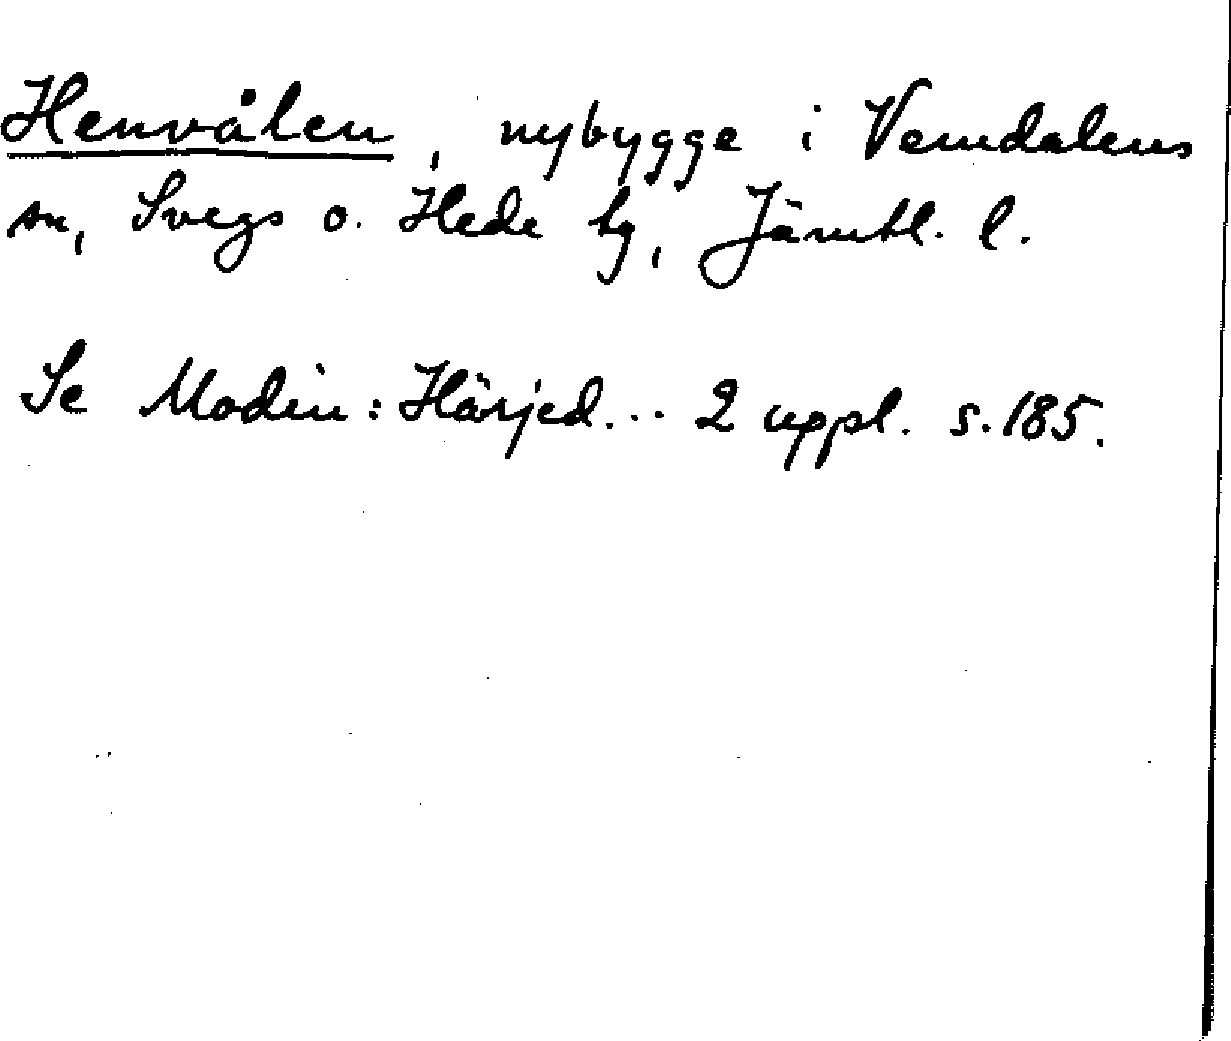 Henvålen, nybygge i Vemdalens
sn, Svegs o. Hede tg, Jämtl. l.
Se Modin: Härjed... 2 uppl. s. 185.